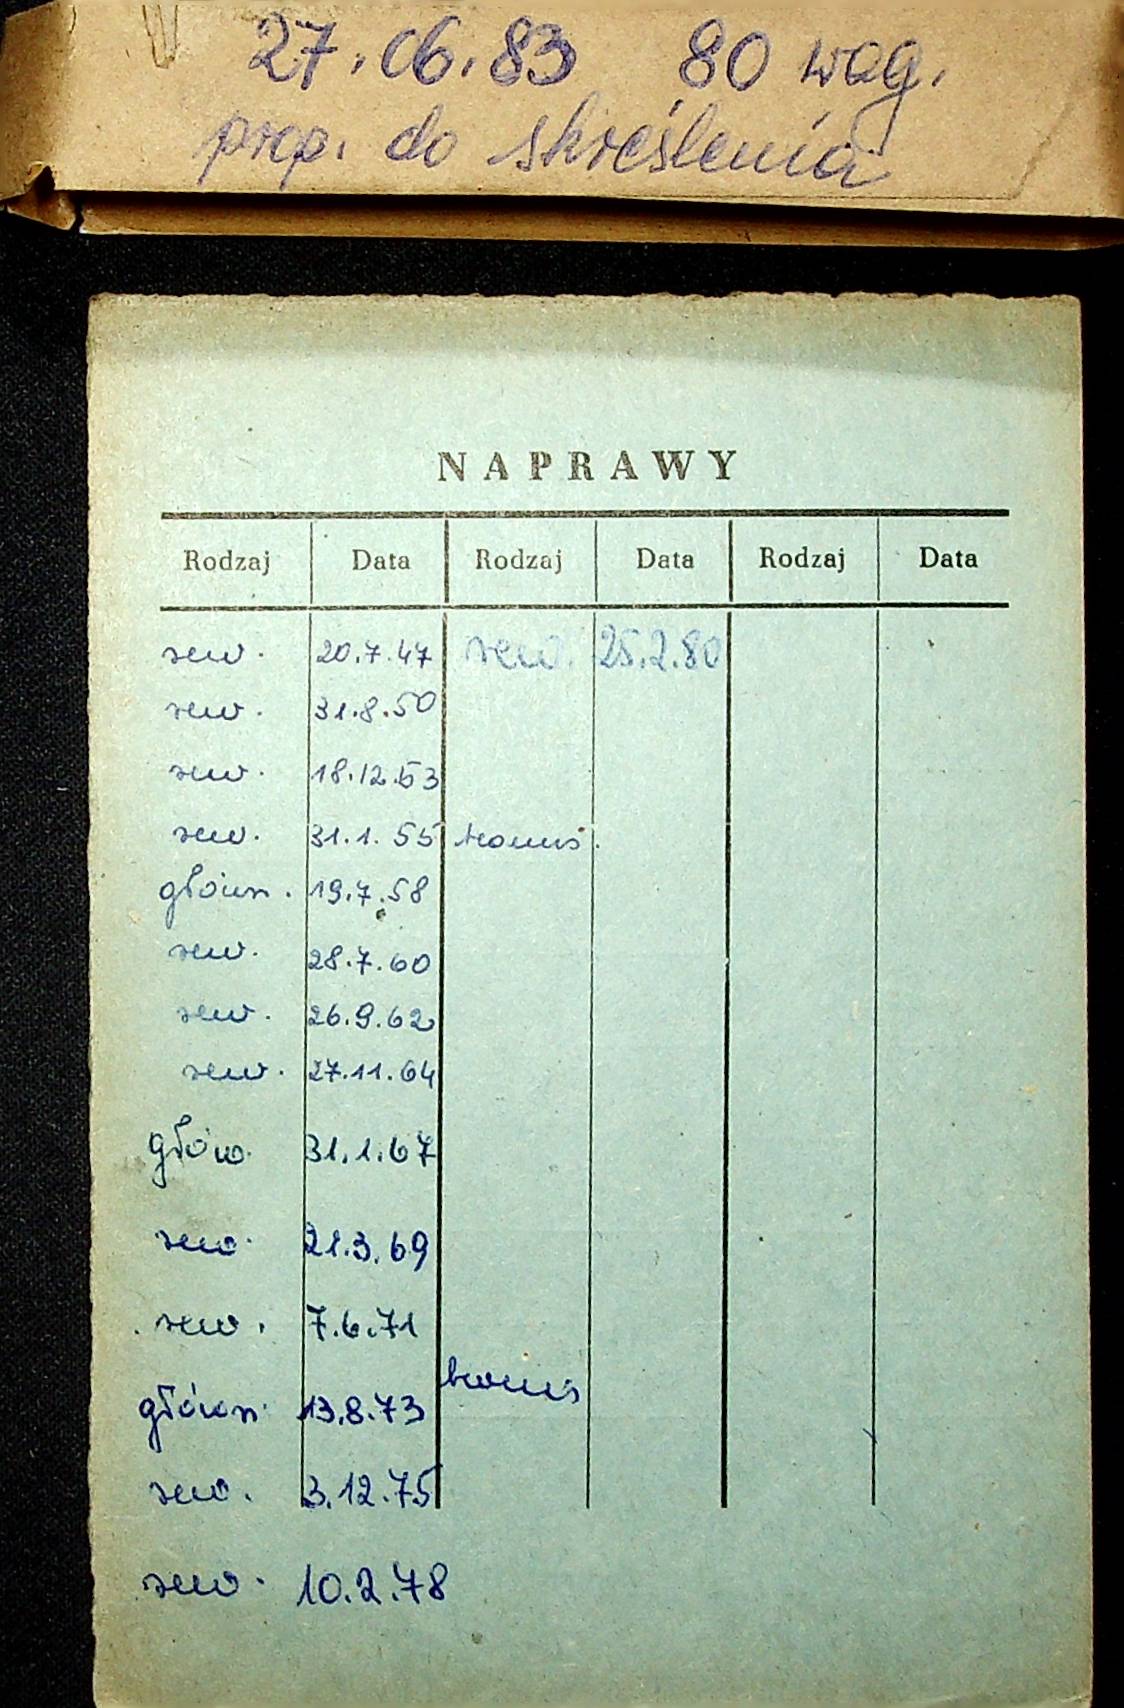 27.06.83 80 wag.
prop. do skreślenia
NAPRAWY
Rodzaj Data Rodzaj Data Rodzaj Data
rew. 20.7.47 rew. 25.2.80
rew. 31.8.50
rew. 18.12.53
rew. 31.1.55
główn. 19.7.58
rew. 28.7.60
rew. 26.9.62
rew. 27.11.64
głów. 31.1.67
rew. 21.3.69
rew. 7.6.71
główn. 13.8.73
rew. 3.12.75
rew. 10.2.78